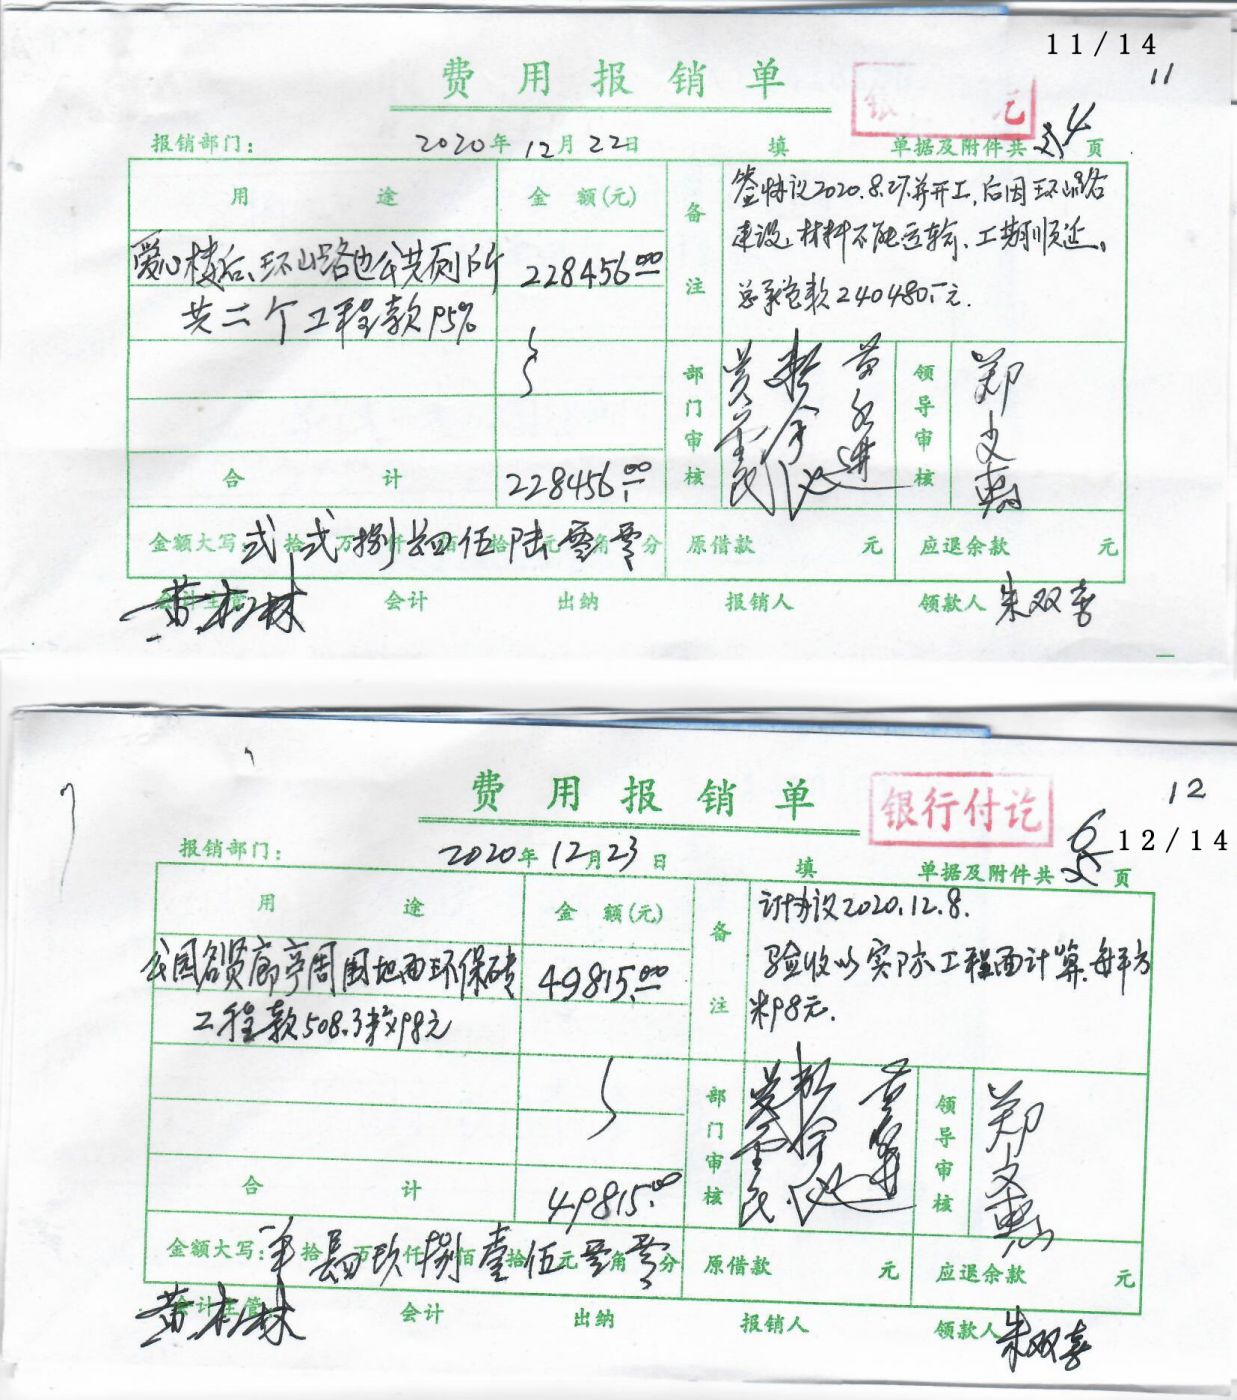 11/14
11
费用报销单
银 讫
报销部门：
2020年12月22日
填
单据及附件共 4 页
用途
金额(元)
备注
签协议2020.8.27并开工，后因环山路
建设，材料不能运输，工期顺延。
总承包款240480.元.
爱心楼后、环山路边公共厕所
228456.00
共二个工程款95%
部门审核
领导审核
合计
228456.00
金额大写：贰拾贰万捌仟肆佰伍拾陆元零角零分
原借款 元
应退余款 元
会计主管
会计
出纳
报销人
领款人 朱双喜
费用报销单
银行付讫
12
12/14
报销部门：
2020年12月23日
填
单据及附件共 6 页
用途
金额(元)
备注
订协议2020.12.8.
验收以实际工程面计算.每平方
米98元.
公园名贤廊亭周围地面环保砖
49815.00
工程款508.3米×98元
部门审核
领导审核
合计
49815.00
金额大写： 拾肆万玖仟捌佰壹拾伍元零角零分
原借款 元
应退余款 元
会计主管
会计
出纳
报销人
领款人 朱双喜